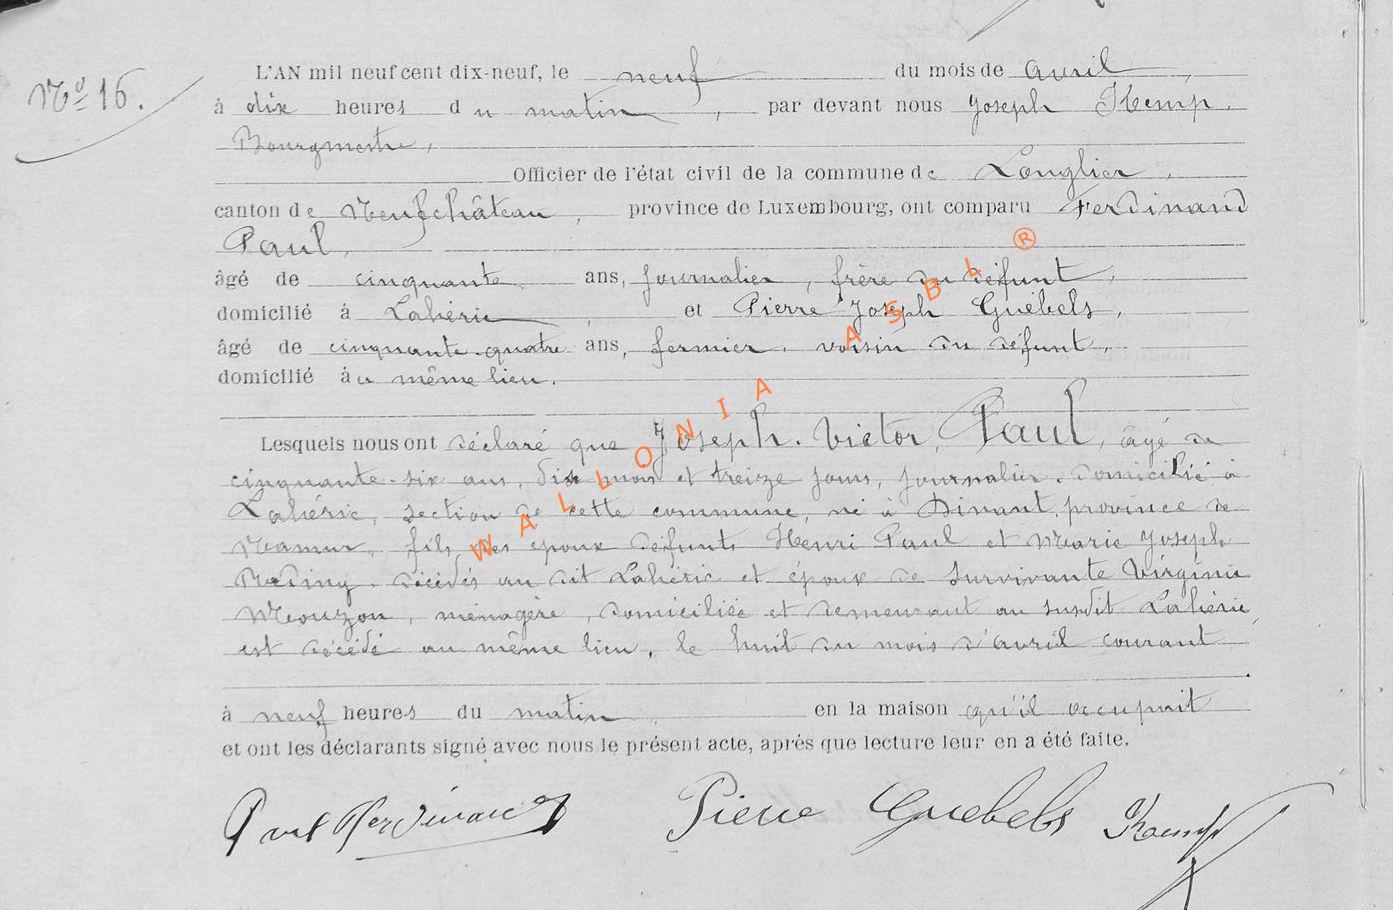 Nº 16.
L'AN mil neuf cent dix-neuf, le neuf du mois de avril,
à dix heures du matin, par devant nous Joseph Hemp,
Bourgmestre,
Officier de l'état civil de la commune de Longlier,
canton de Neufchâteau, province de Luxembourg, ont comparu Ferdinand
Paul,
âgé de cinquante ans, journalier, frère du défunt,
domicilié à Lahérie, et Pierre Joseph Guébels,
âgé de cinquante-quatre ans, fermier, voisin du défunt,
domicilié au même lieu.
Lesquels nous ont déclaré que Joseph-Victor Paul, âgé de
cinquante-six ans, dix mois et treize jours, journalier, domicilié à
Lahérie, section de cette commune, né à Dinant, province de
Namur, fils des époux défunts Henri Paul et Marie Joseph
décédés au dit Lahérie et époux de survivante Virginie
Mouzon, ménagère, domiciliée et demeurant au susdit Lahérie,
est décédé au même lieu, le huit du mois d'avril courant
à neuf heures du matin en la maison qu'il occupait
et ont les déclarants signé avec nous le présent acte, après que lecture leur en a été faite.
Paul Ferdinand Pierre Guebels
WALLONIA ASBL ®